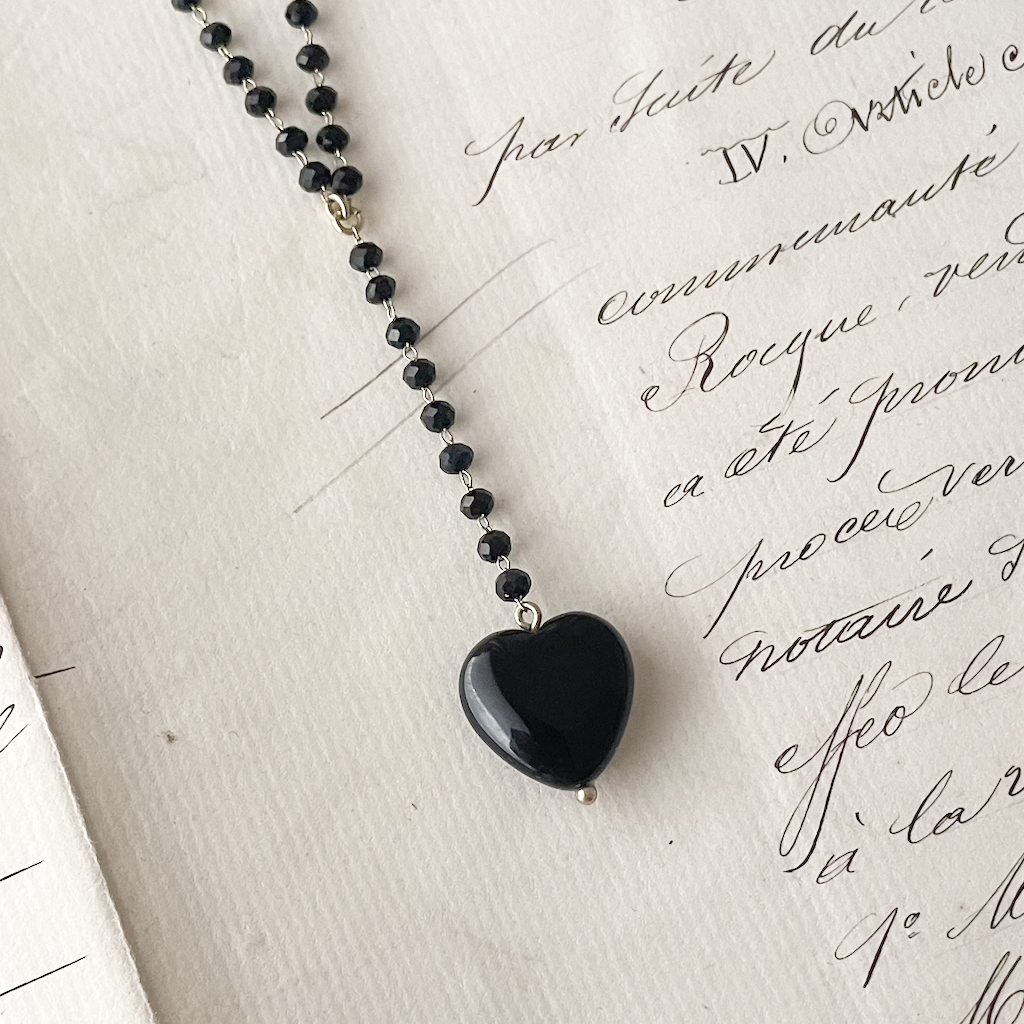 par Suite du
IV. Article
communauté
Rocque, ven
a été pron
procès ver
notaire
effeo de
à la r
9° M
M